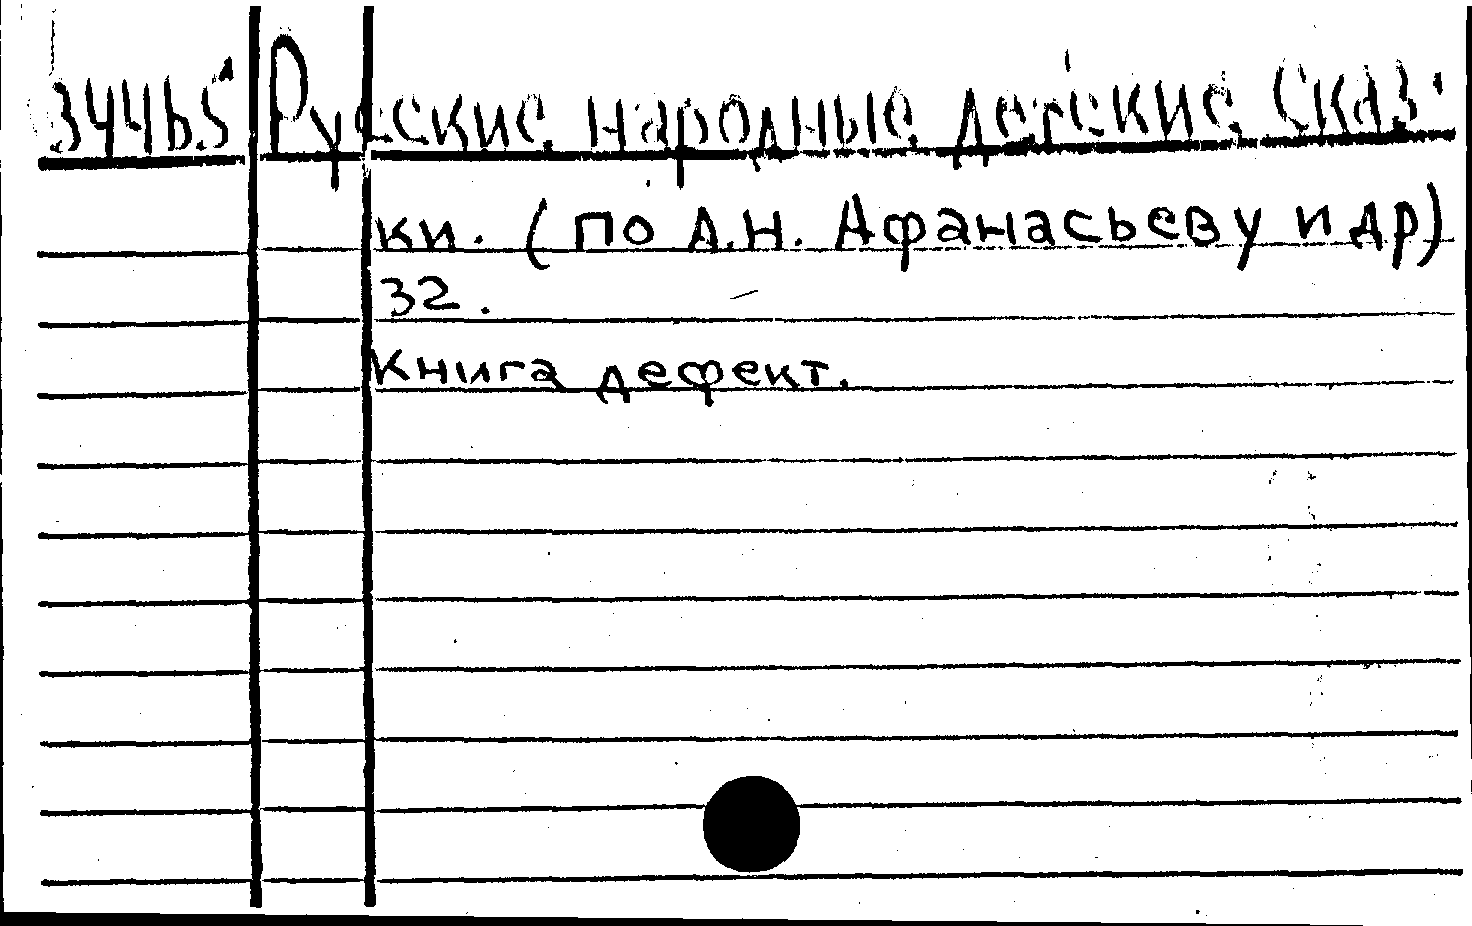 34465 Русские народные детские сказ-
ки. (по А.Н. Афанасьеву и др)
32.
Книга дефект.